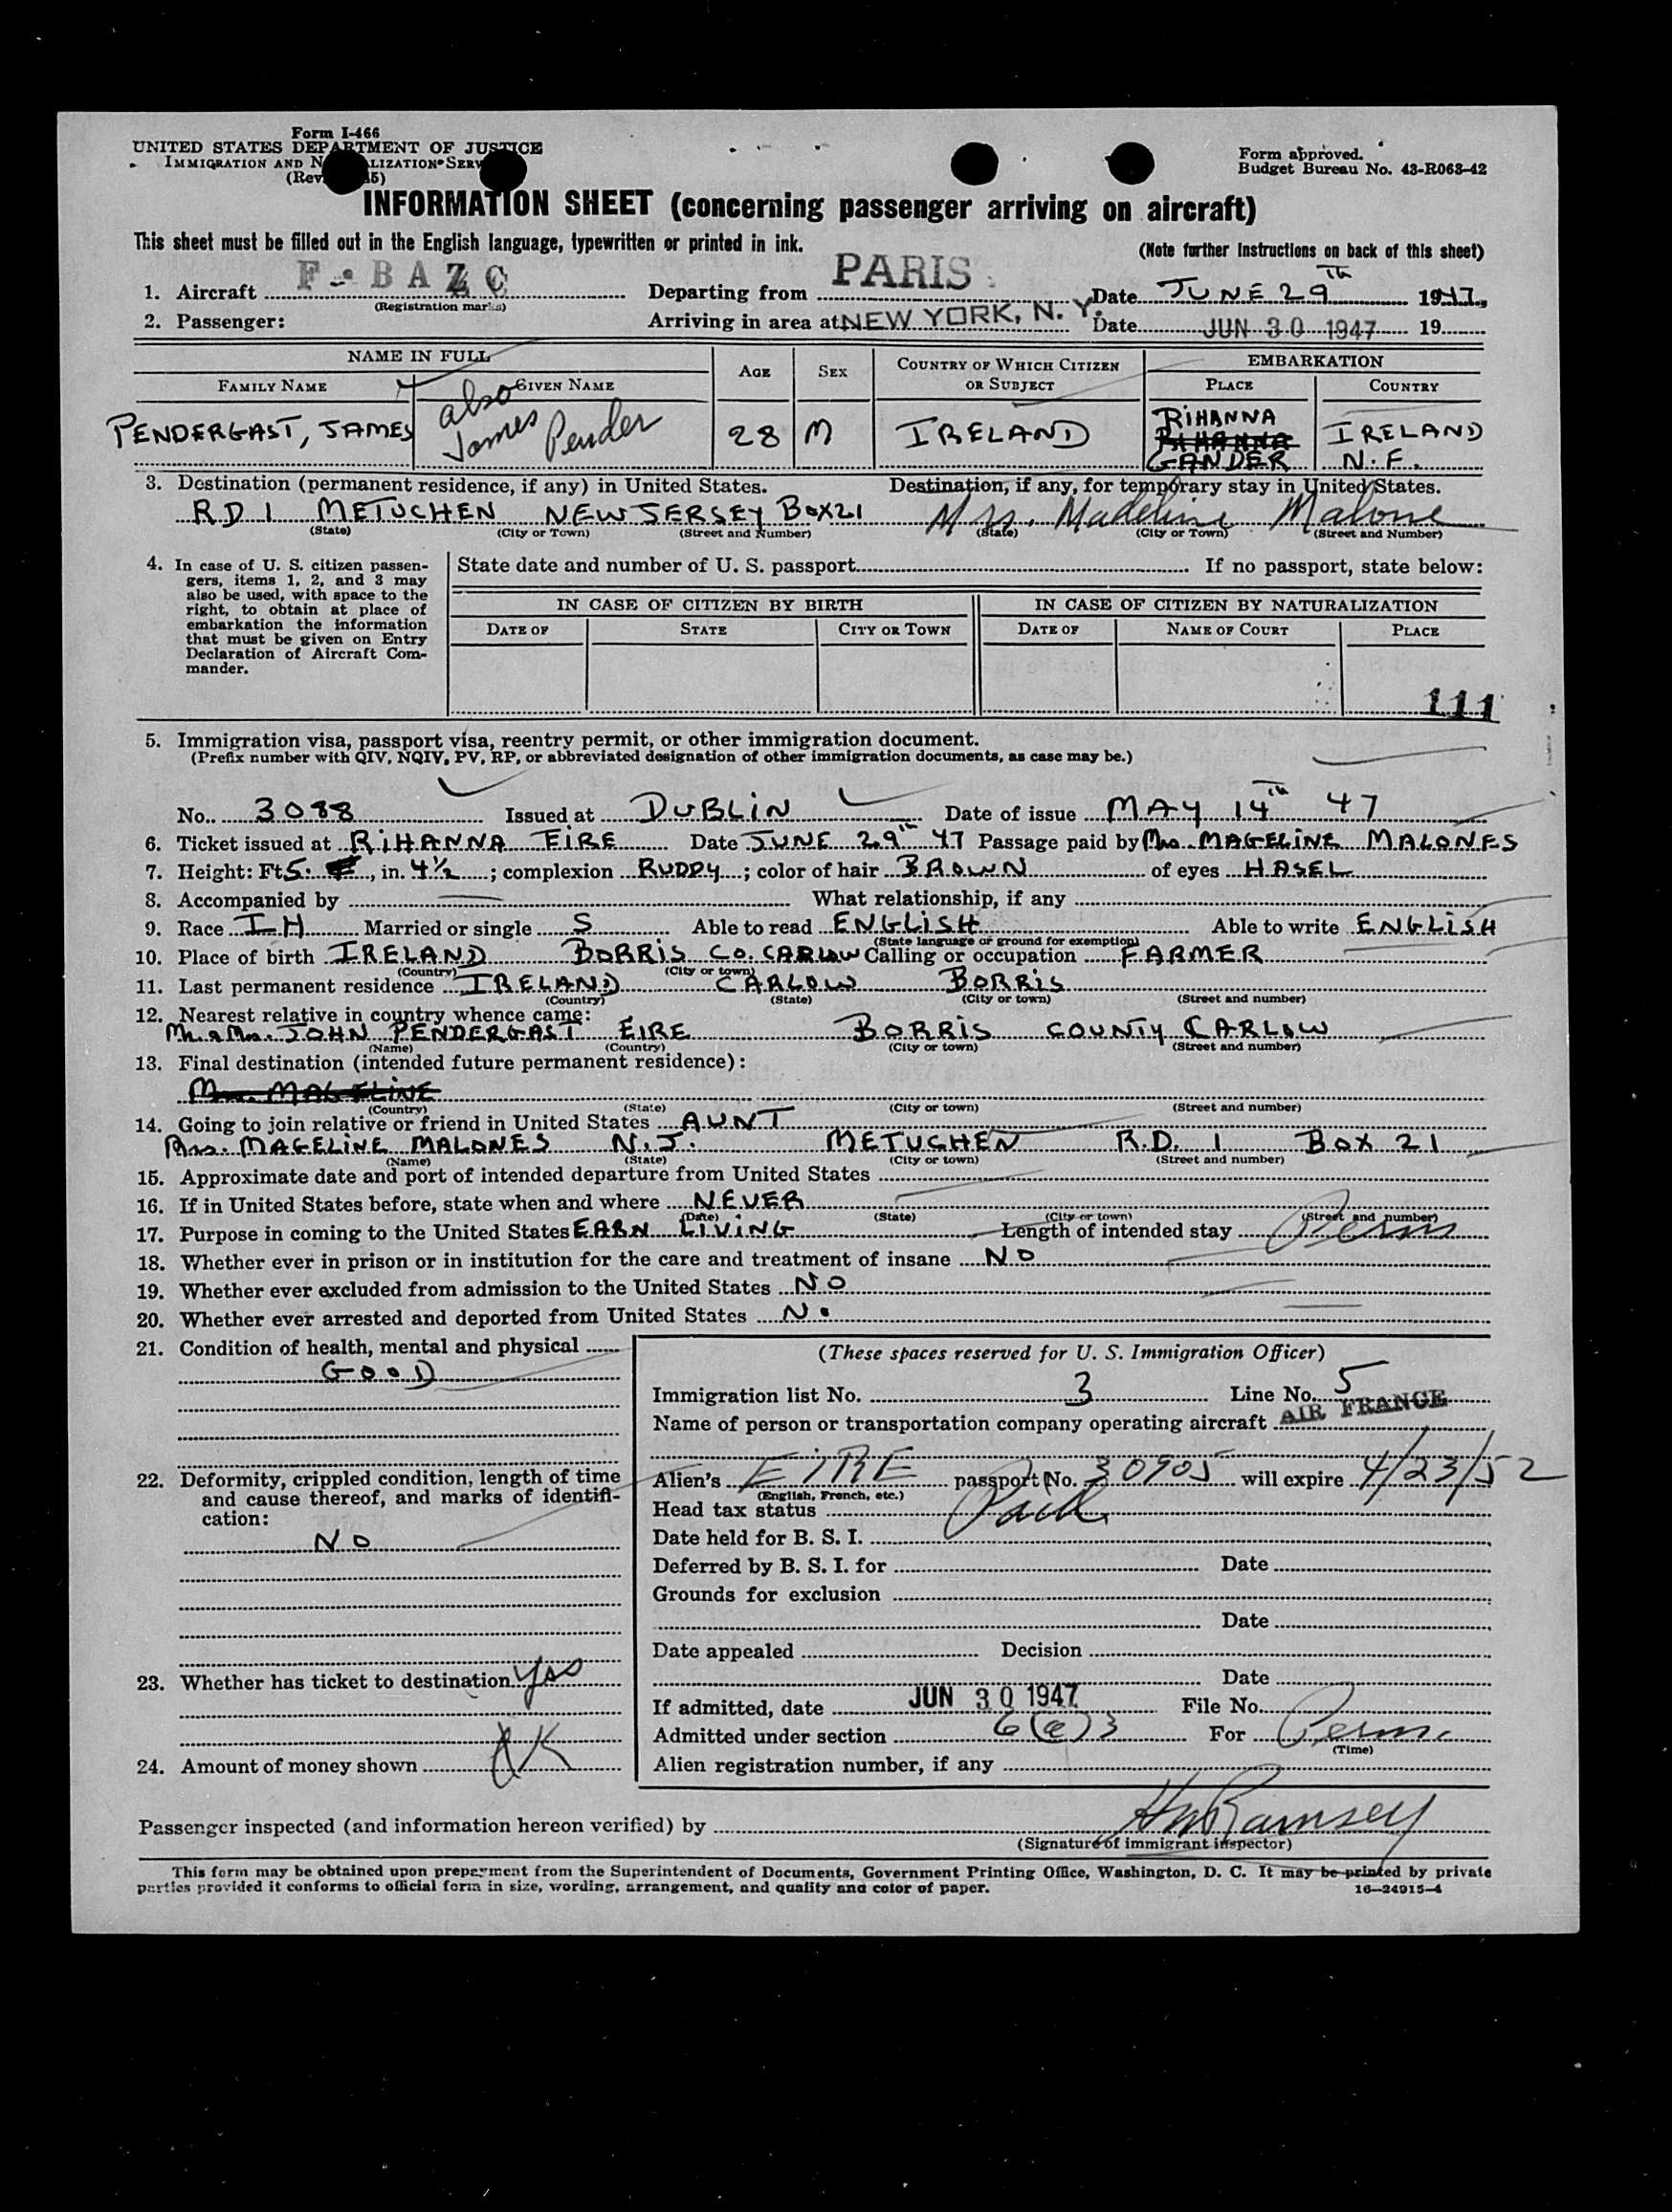 Form I-466
UNITED STATES DEPARTMENT OF JUSTICE
IMMIGRATION AND N LIZATION SERV
(Rev. 5)
Form approved.
Budget Bureau No. 43-R063-42
INFORMATION SHEET (concerning passenger arriving on aircraft)
This sheet must be filled out in the English language, typewritten or printed in ink.
(Note further instructions on back of this sheet)
1. Aircraft F-BAZC Departing from PARIS Date JUNE 29th 1947,
(Registration marks)
2. Passenger: Arriving in area at NEW YORK, N. Y. Date JUN 30 1947 19
NAME IN FULL AGE SEX COUNTRY OF WHICH CITIZEN OR SUBJECT EMBARKATION
FAMILY NAME GIVEN NAME PLACE COUNTRY
PENDERGAST, JAMES also James Pender 28 M IRELAND RIHANNA IRELAND
RIHANNA
GANDER N.F.
3. Destination (permanent residence, if any) in United States. Destination, if any, for temporary stay in United States.
RD 1 METUCHEN NEW JERSEY BOX 21 Mrs. Madeline Malone
(State) (City or Town) (Street and Number) (State) (City or Town) (Street and Number)
4. In case of U. S. citizen passen-
gers, items 1, 2, and 3 may
also be used, with space to the
right, to obtain at place of
embarkation the information
that must be given on Entry
Declaration of Aircraft Com-
mander.
State date and number of U. S. passport If no passport, state below:
IN CASE OF CITIZEN BY BIRTH IN CASE OF CITIZEN BY NATURALIZATION
DATE OF STATE CITY OR TOWN DATE OF NAME OF COURT PLACE
111
5. Immigration visa, passport visa, reentry permit, or other immigration document.
(Prefix number with QIV, NQIV, PV, RP, or abbreviated designation of other immigration documents, as case may be.)
No. 3088 Issued at DUBLIN Date of issue MAY 14th 47
6. Ticket issued at RIHANNA EIRE Date JUNE 29th 47 Passage paid by Mrs. MAGELINE MALONES
7. Height: Ft. 5, in. 4½; complexion RUDDY; color of hair BROWN of eyes HASEL
8. Accompanied by What relationship, if any
9. Race I-H Married or single S Able to read ENGLISH Able to write ENGLISH
(State language or ground for exemption)
10. Place of birth IRELAND BORRIS CO. CARLOW Calling or occupation FARMER
(Country) (City or town)
11. Last permanent residence IRELAND CARLOW BORRIS
(Country) (State) (City or town) (Street and number)
12. Nearest relative in country whence came:
Mr. & Mrs. JOHN PENDERGAST EIRE BORRIS COUNTY CARLOW
(Name) (Country) (City or town) (Street and number)
13. Final destination (intended future permanent residence):
Mrs. MAGELINE
(Country) (State) (City or town) (Street and number)
14. Going to join relative or friend in United States AUNT
Mrs. MAGELINE MALONES N.J. METUCHEN R.D. 1 BOX 21
(Name) (State) (City or town) (Street and number)
15. Approximate date and port of intended departure from United States
16. If in United States before, state when and where NEVER
(Date) (State) (City or town) (Street and number)
17. Purpose in coming to the United States EARN LIVING Length of intended stay Perm
18. Whether ever in prison or in institution for the care and treatment of insane NO
19. Whether ever excluded from admission to the United States NO
20. Whether ever arrested and deported from United States NO
21. Condition of health, mental and physical
GOOD
22. Deformity, crippled condition, length of time
and cause thereof, and marks of identifi-
cation:
NO
23. Whether has ticket to destination yes
24. Amount of money shown OK
(These spaces reserved for U. S. Immigration Officer)
Immigration list No. 3 Line No. 5
Name of person or transportation company operating aircraft AIR FRANCE
Alien's EIRE passport No. 30905 will expire 4/23/52
(English, French, etc.)
Head tax status Paid
Date held for B. S. I.
Deferred by B. S. I. for Date
Grounds for exclusion
Date
Date appealed Decision
Date
If admitted, date JUN 30 1947 File No.
Admitted under section 6(a)3 For Perm.
(Time)
Alien registration number, if any
Passenger inspected (and information hereon verified) by HM Ramsey
(Signature of immigrant inspector)
This form may be obtained upon prepayment from the Superintendent of Documents, Government Printing Office, Washington, D. C. It may be printed by private
parties provided it conforms to official form in size, wording, arrangement, and quality and color of paper.
16—24915-4